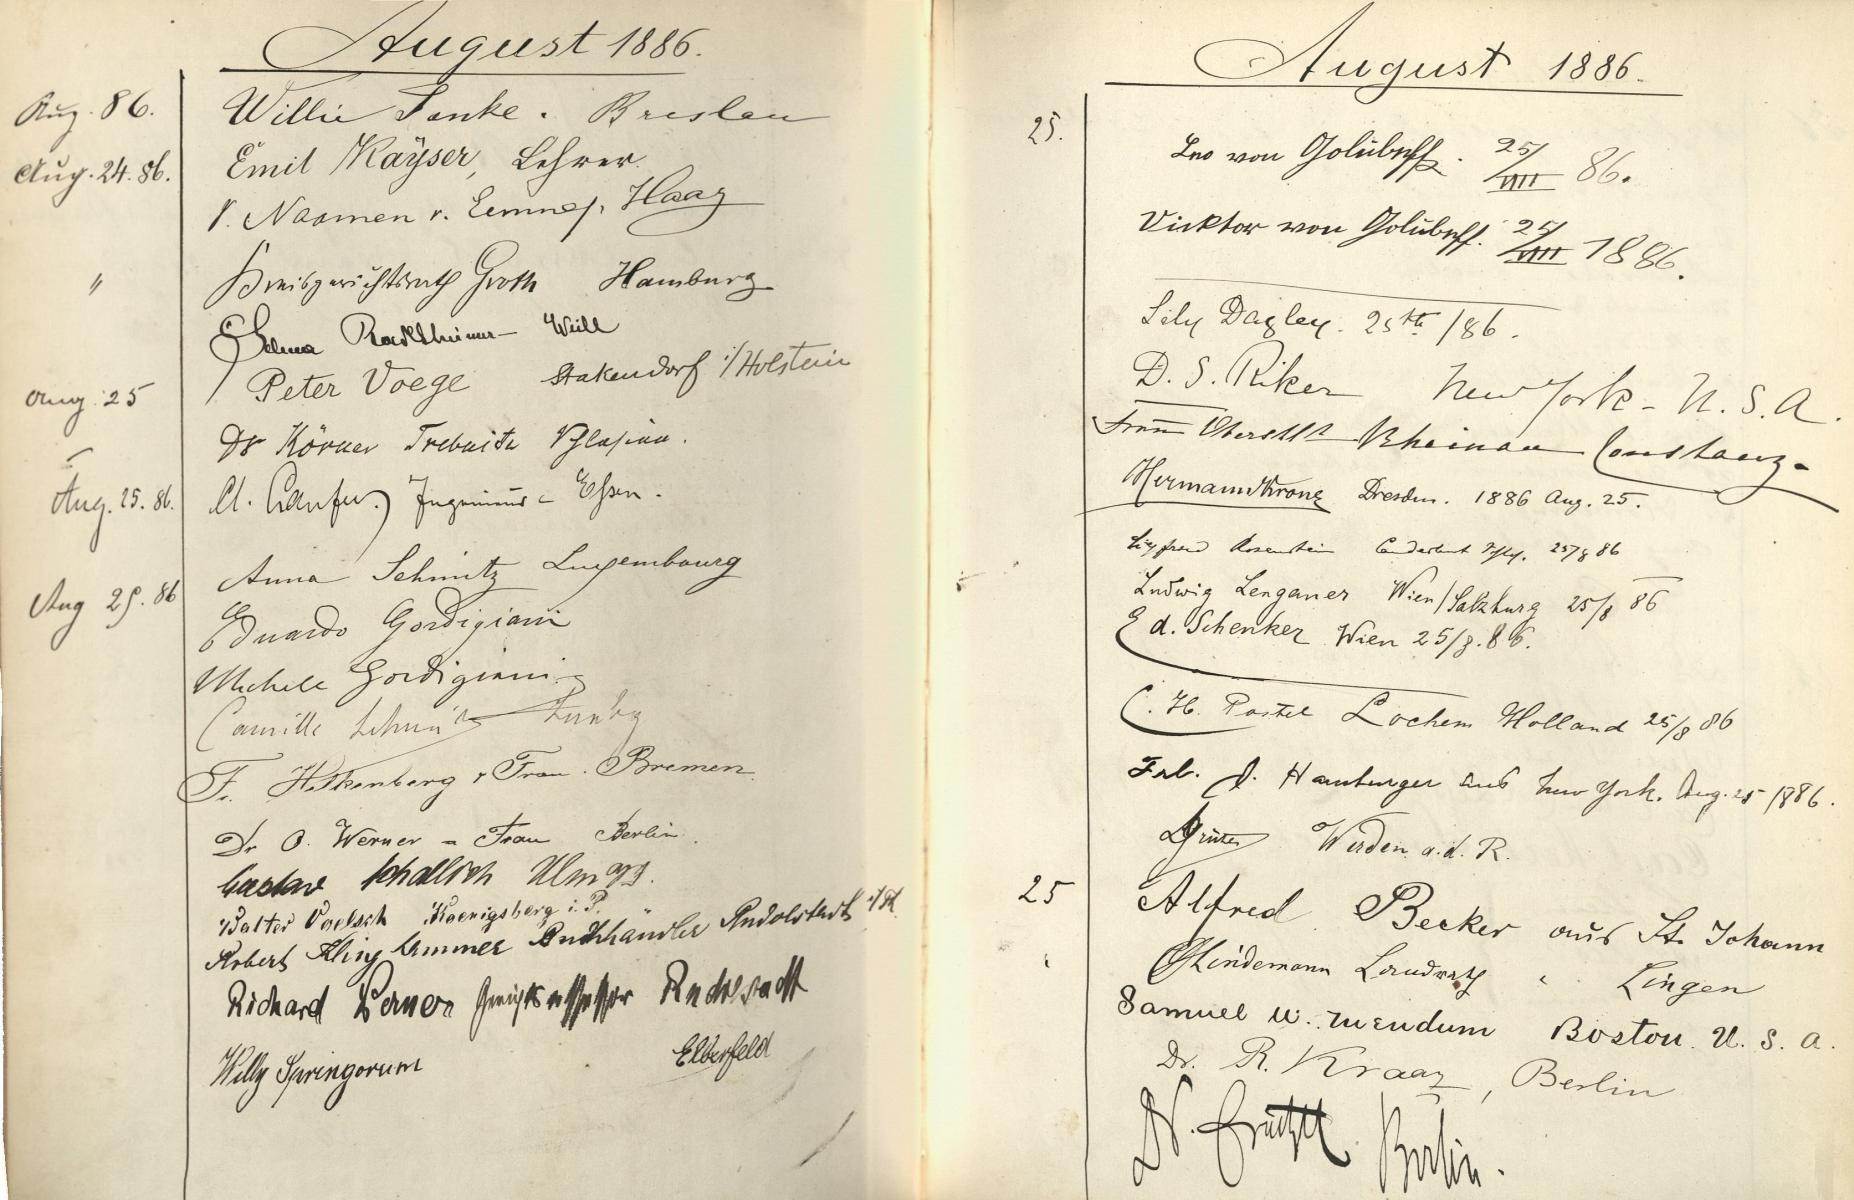 August 1886.
Aug. 86. Willie Breslau
Aug. 24. 86. Emil Kayser, Lehrer.
v. Naamen v. Eemnes, Haag
" Kreisgerichtsrath Groth Hamburg
Selma Weill
Aug. 25 Peter Voege Stakendorf i/Holstein
Dr Körner Trebnitz
Aug. 25. 86. Ingenieur - Essen.
Anna Schmitz Luxembourg
Aug 25. 86 Eduardo Gordigiani
Michele Gordigiani
Camille Schmitz
Fr. & Frau. Bremen
Dr O. Werner - Frau Berlin
Gustav Ulm
Walter Koenigsberg i. P.
Robert Klinghammer Buchhändler Rudolstadt i/Th.
Richard Werner Rudolstadt
Willy Springorum Elberfeld
August 1886.
25. Leo von Golubeff. 25/VIII 86.
Vicktor von Golubeff. 25/VIII 1886.
Lily Dagley. 25th /86.
D. S. Riker New York - U. S. A.
Frau Oberstlt Rheinau Constanz.
Hermann Krone Dresden. 1886 Aug. 25.
Rosenstein 25/8 86
Ludwig Wien/Salzburg 25/8 86
Ed. Schenker Wien 25/8. 86.
C. H. Postel Lochem Holland 25/8 86
Frl. J. Hamburger aus New York. Aug. 25 1886.
Werden a. d. R.
25 Alfred Becker aus St. Johann
Lindemann Landrath " Lingen
Samuel W. Mendum Boston U. S. A.
Dr. R. Kraaz, Berlin
Dr. Berlin.